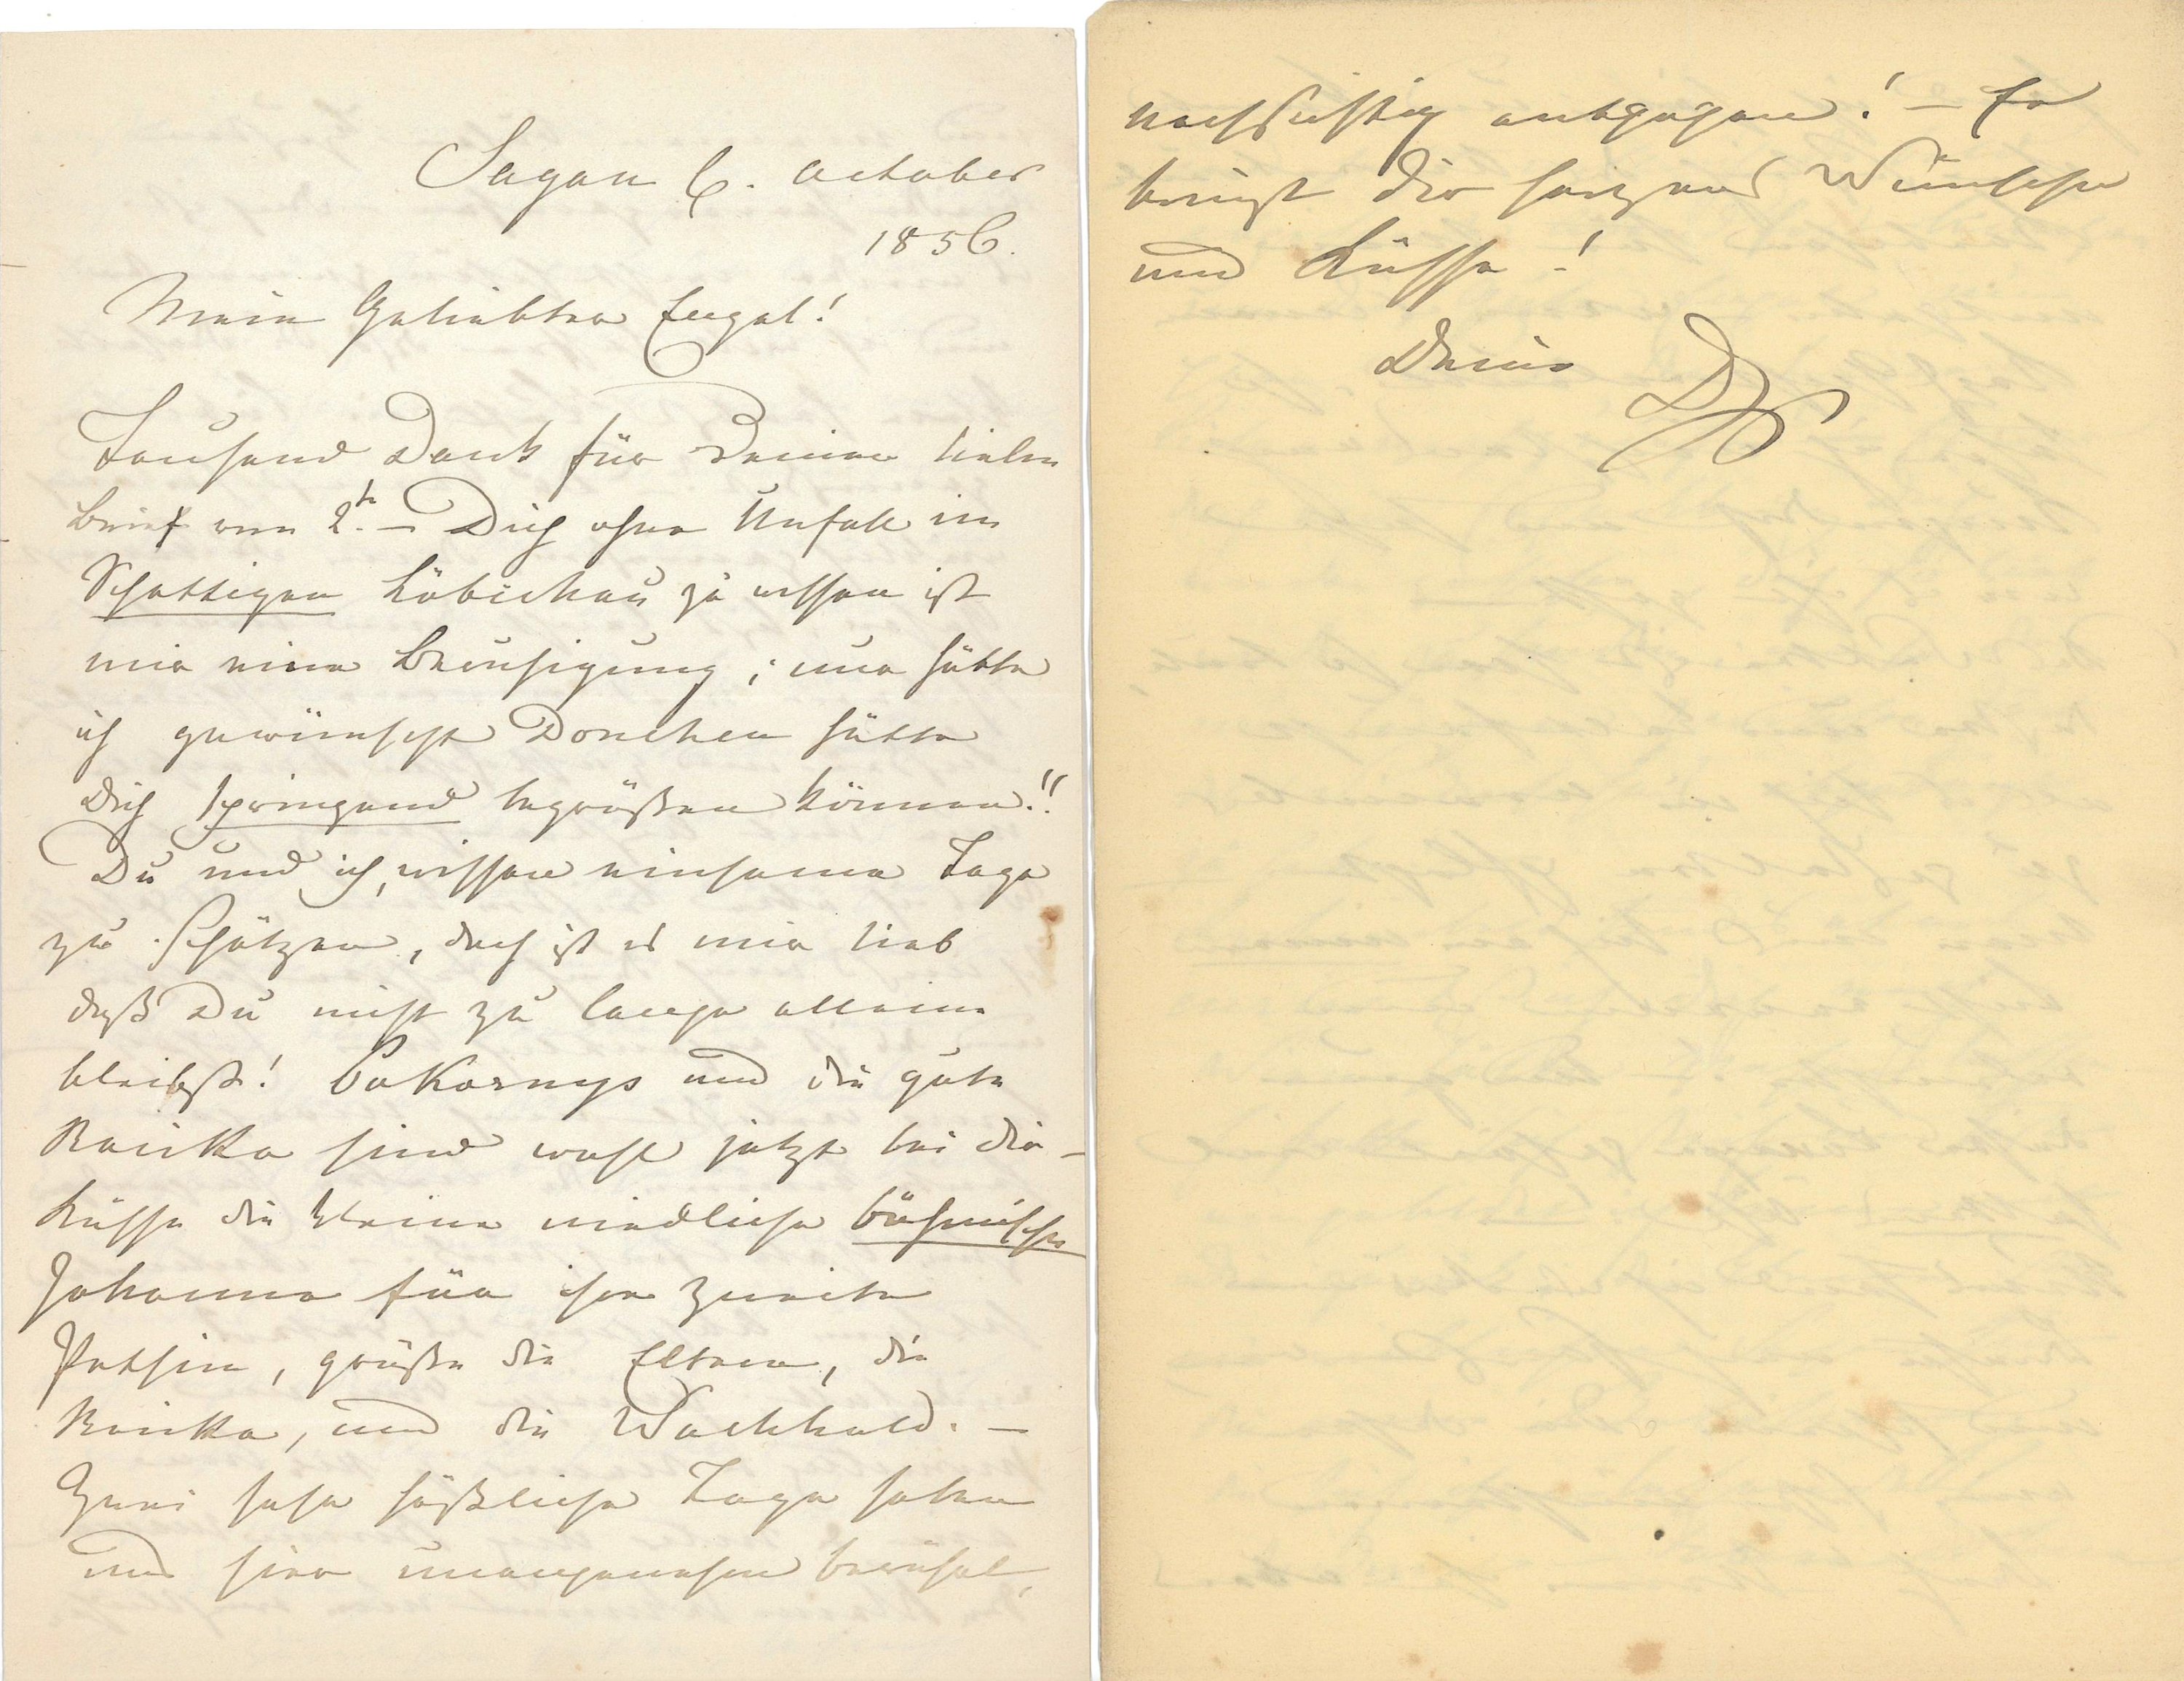 Sagan 6. October
1856.
Mein Geliebter Engel!
Tausend Dank für Deinen lieben
Brief vom 2t. – Dich ohne Unfall im
Schattigen Löbichau zu wissen ist
mir eine Beruhigung; nur hätte
ich gewünscht Dorchen hätte
Dich springend begrüßen können!!
Du und ich, wissen einsame Tage
zu Schätzen, doch ist es mir lieb
daß Du nicht zu lange allein
bleibst! Pokornys und die gute
sind wohl jetzt bei dir –
Küsse die kleine niedliche böhmische
Johanna für ihre zweite
Pathin, grüße die Eltern, die
und die –
Zwei sehr häßliche Tage haben
uns hier unangenehm berührt,
nachsichtig entgegen! – Er
bringt Dir herzens Wünsche
und Küsse!
Deine
D